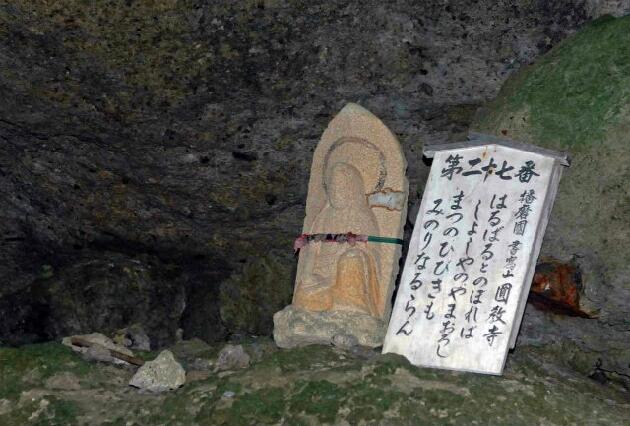 第二十七番
播磨國 書寫山 圓教寺
はるばるとのぼれば
しよしやのやまおろし
まつのひびきも
みのりなるらん